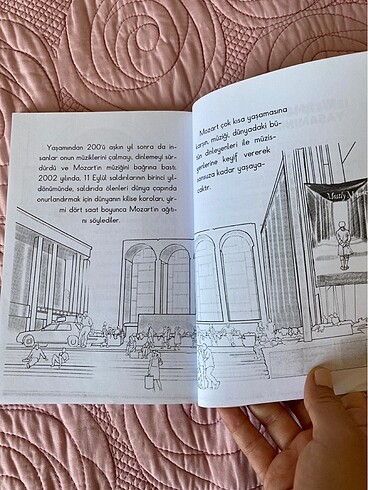 Yaşamından 200'ü aşkın yıl sonra da in-
sanlar onun müziklerini çalmayı, dinlemeyi sür-
dürdü ve Mozart'ın müziğini bağrına bastı.
2002 yılında, 11 Eylül saldırılarının birinci yıl-
dönümünde, saldırıda ölenleri dünya çapında
onurlandırmak için dünyanın kilise koroları, yir-
mi dört saat boyunca Mozart'ın ağıtı-
nı söylediler.
Mozart çok kısa yaşamasına
karşın, müziği, dünyadaki bü-
tün dinleyenleri ile müzis-
yenlerine keyif vererek
sonsuza kadar yaşaya-
caktır.
Mostly